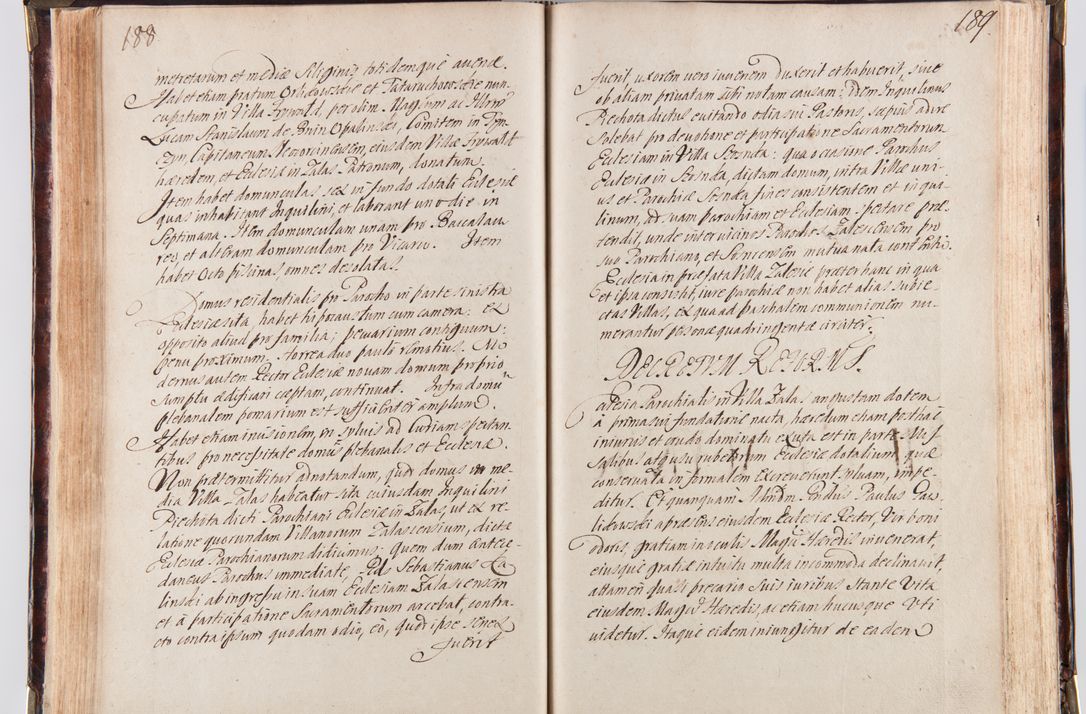 188
metretarum et mediæ Siliginis totidemque avenæ.
Habet etiam pratum Orlidowskie et Tataruchowskie nun-
cupatum in Villa Frywałd, per olim Magcum ac Illrem
Lucam Stanislaum de Bnin Opalinski, Comitem in Ten-
czyn Capitaneum, ejusdem Villæ Frywałd
hæredem, et Ecclesiæ in Zalas Patronum, donatum.
Item habet domunculas sex in fundo dotali Ecclesiæ
quas inhabitant Inquilini, et laborant uno die in
Septimana. Item domunculam unam pro Baccalau-
reo, et alteram domunculam pro Vicario. Item
habet Octo piscinas omnes desolatas.
Domus residentialis pro Parocho in parte sinistra
Ecclesiæ sita, habet hypocaustum cum camera: ex
opposito aliud pro familia; pecuarium contiguum:
penu proximum. Horrea duo paulo remotius. Mo
dernus autem Rector Ecclesiæ novam domum proprio
sumptu ædificari cæptam, continuat. Infra domum
plebanalem pomarium est sufficienter amplum.
Habet etiam incisionem, in sylvis ad Curiam spectan-
tibus pro necessitate domus plebanalis et Ecclesiæ.
Non prætermittitur adnotandum, quod domus in me-
dia Villa Zalas habeatur sita cuiusdam Inquilini
Piechota dicti Parochiani Ecclesiæ in Zalas, ut ex re-
latione quorundam Villanorum Zalassensium, dictæ
Ecclesiæ Parochianorum didicimus: Quem dum Antece-
daneus Parochus immediate, Sebastianus Ca
linski ab ingressu in suam Ecclesiam Zalassensem
et à participatione Sacramentorum arcebat, contra-
cto contra ipsum quodam odio, eo, quod ipse senex
fuerit
189.
fuerit, uxorem vero iuvenem duxerit et habuerit, sive
ob aliam privatam sibi notam causam: Idem Inquilinus
Piechota dictus evitando odia sui Pastoris, sæpius adire
Solebat pro devotione et participatione Sacramentorum
Ecclesiam in Villa: qua occasione Parochus
Ecclesiæ in, dictam domum, intra Villæ uni-
us et Parochiæ fines consistentem et inqui
linum, ad suam parochiam et Ecclesiam spectare præ-
tendit, unde inter vicinos Parochos Zalassensem pro
suo Parochiano, et mutua nata contentio.
Ecclesia in præfata Villa Zalesie præter hanc in qua
et ipsa consistit, iure parochiæ non habet alias subie-
ctas Villas, ex qua ad paschalem communionem nu-
merantur personæ quadringentæ circiter.
DECRETUM REFORMS.
Ecclesia Parochialis in Villa Zalas angustam dotem
à primæva fundatione nacta, hæredum etiam posthac
iniuriis et crudo dominatu exuta est in parte. Nis
salibus atq usu rubetorum Ecclesiæ dotalium, quæ
conservata in formalem Excreverunt sylvam, impe-
ditur. Et quanquam Paulus Gaw
likowski apræsens eiusdem Ecclesiæ Rector, Vir boni
odoris, gratiam in oculis Magci Hæredis invenerat,
eiusque gratiæ intuitu multa incommoda declinavit,
attamen quasi precario suis iuribus stante Vita
eiusdem Magci Hæredis, ac etiam hucusque Uti
videtur. Itaque eidem iniungitur de eadem